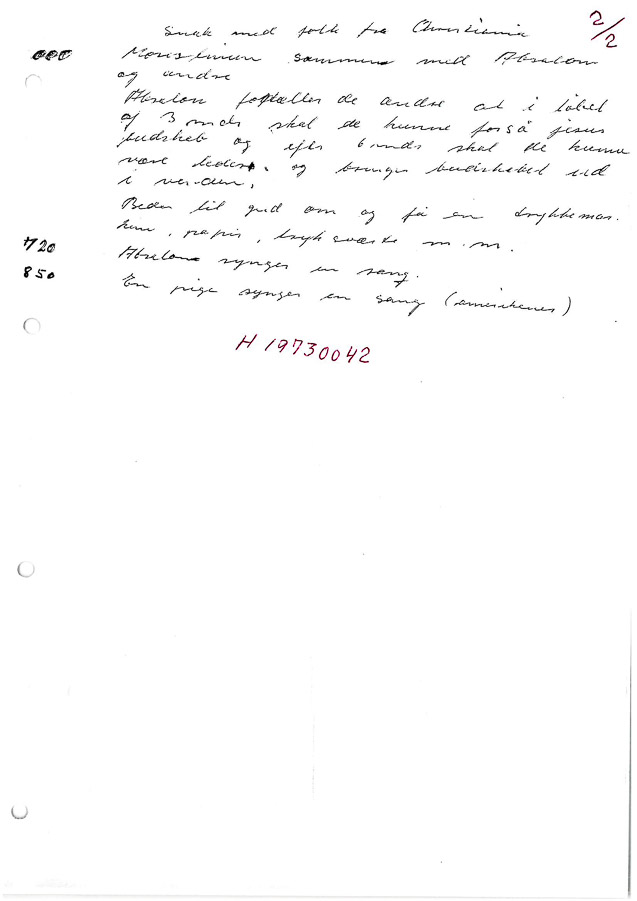 2/2
Snak med folk fra Christiania
000 sammen med Absalon
og andre
Absalon fortæller de andre at i løbet
af 3 mnds skal de kunne forså jesus
budskab og efter 6 mnds skal de kunne
være ledere. og bringe budskabet ud
i verden.
Beder til gud om og få en trykkemas.
kine, papir, tryksværte m.m.
720 Absalon synger en sang.
850 En pige synger en sang
H 19730042